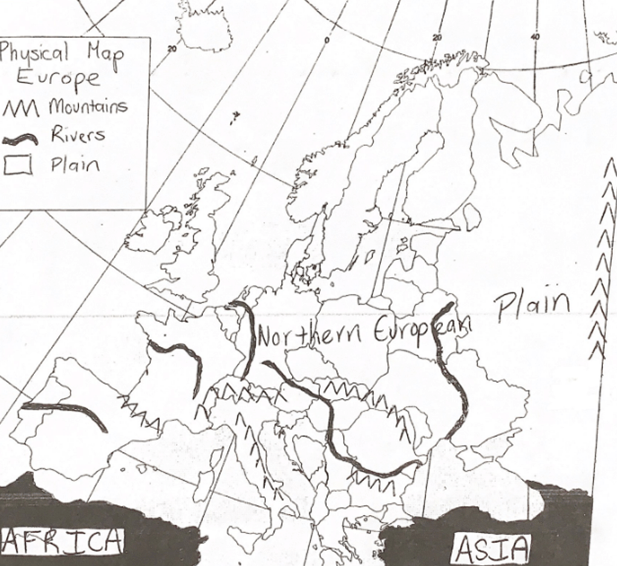 Physical Map
Europe
Mountains
Rivers
Plain
20
0
20
40
Northern European
Plain
AFRICA
ASIA